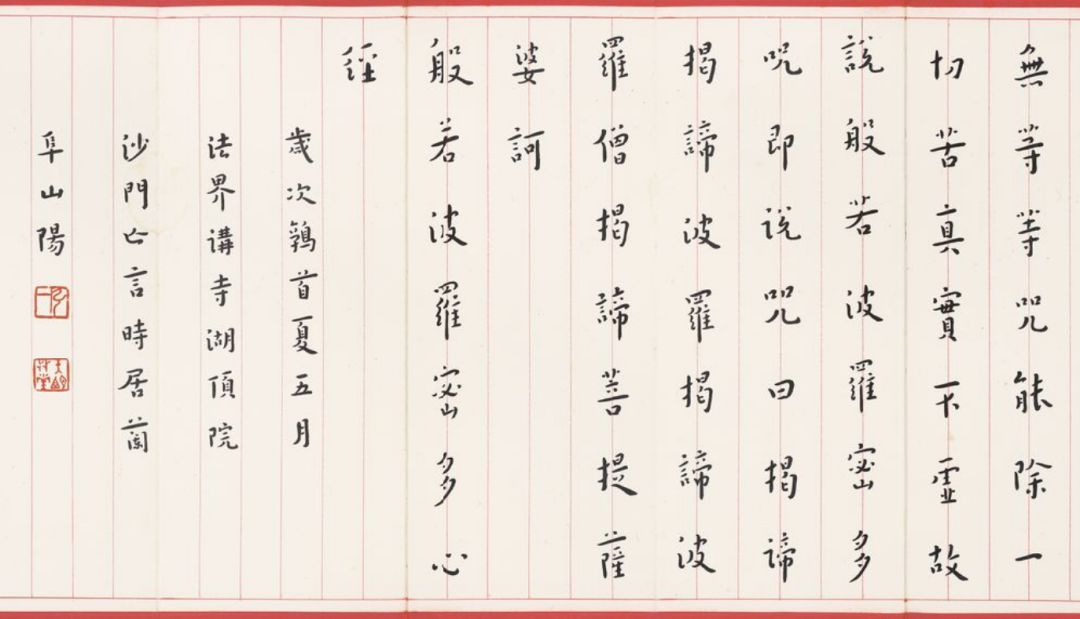 無等等咒能除一
切苦真實不虛故
說般若波羅蜜多
咒即說咒曰揭諦
揭諦波羅揭諦波
羅僧揭諦菩提薩
婆訶
般若波羅蜜多心
經
歲次鶉首夏五月
法界講寺湖頂院
沙門亡言時居蘭
阜山陽